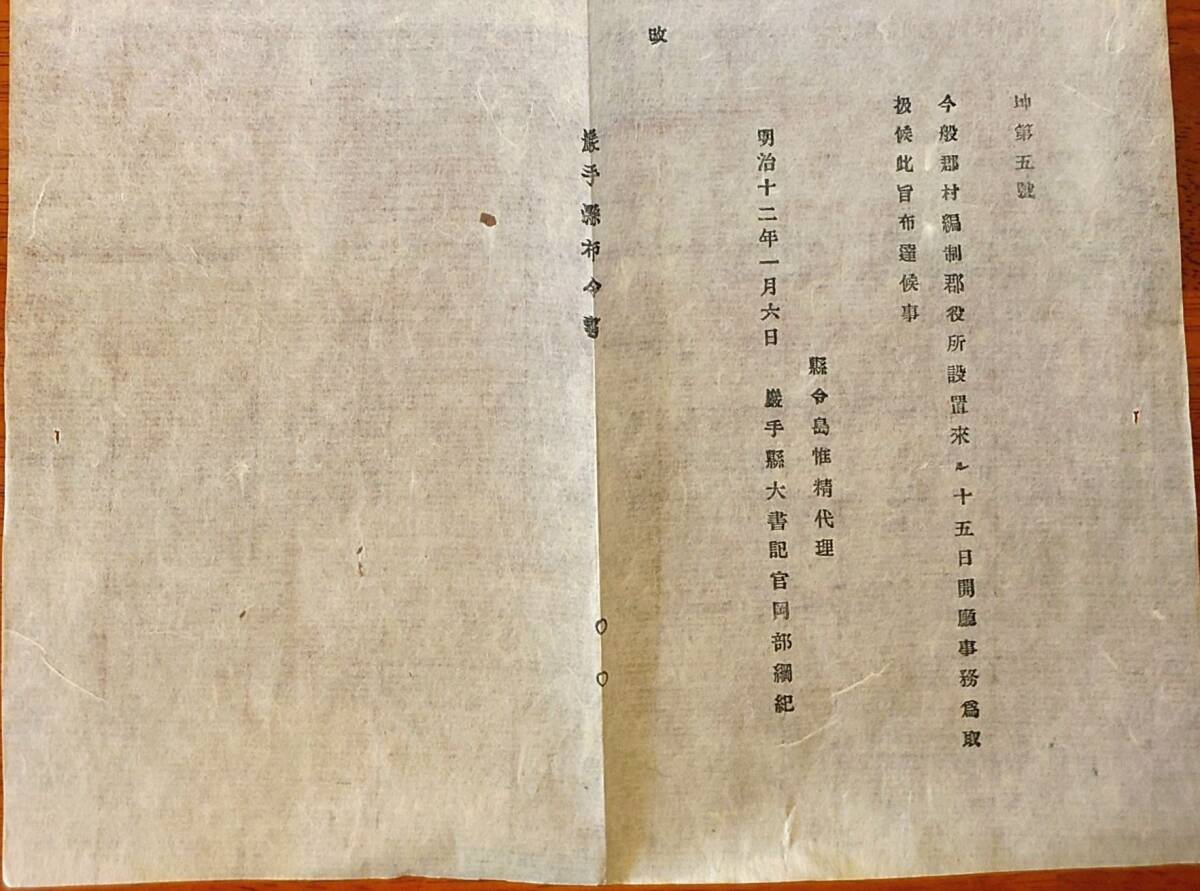 坤第五號
今般郡村編制郡役所設置來ル十五日開廳事務爲取
扱候此旨布達候事
縣令島惟精代理
明治十二年一月六日 巖手縣大書記官岡部綱紀
改
巖手縣布令書